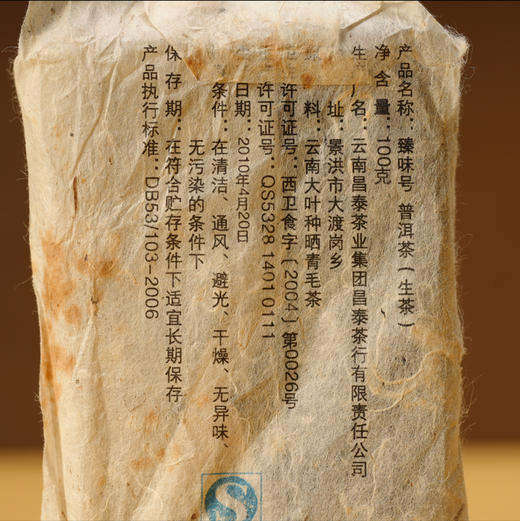 产品名称：臻味号 普洱茶（生茶）
净含量：100克
生 厂名：云南昌泰茶业集团昌泰茶行有限责任公司
址：景洪市大渡岗乡
料：云南大叶种晒青毛茶
许可证号：西卫食字（2004）第0026号
许可证号：QS5328 1401 0111
日期：2010年4月20日
条件：在清洁、通风、避光、干燥、无异味、
无污染的条件下
保存期：在符合贮存条件下适宜长期保存
产品执行标准：DB53/103-2006
S